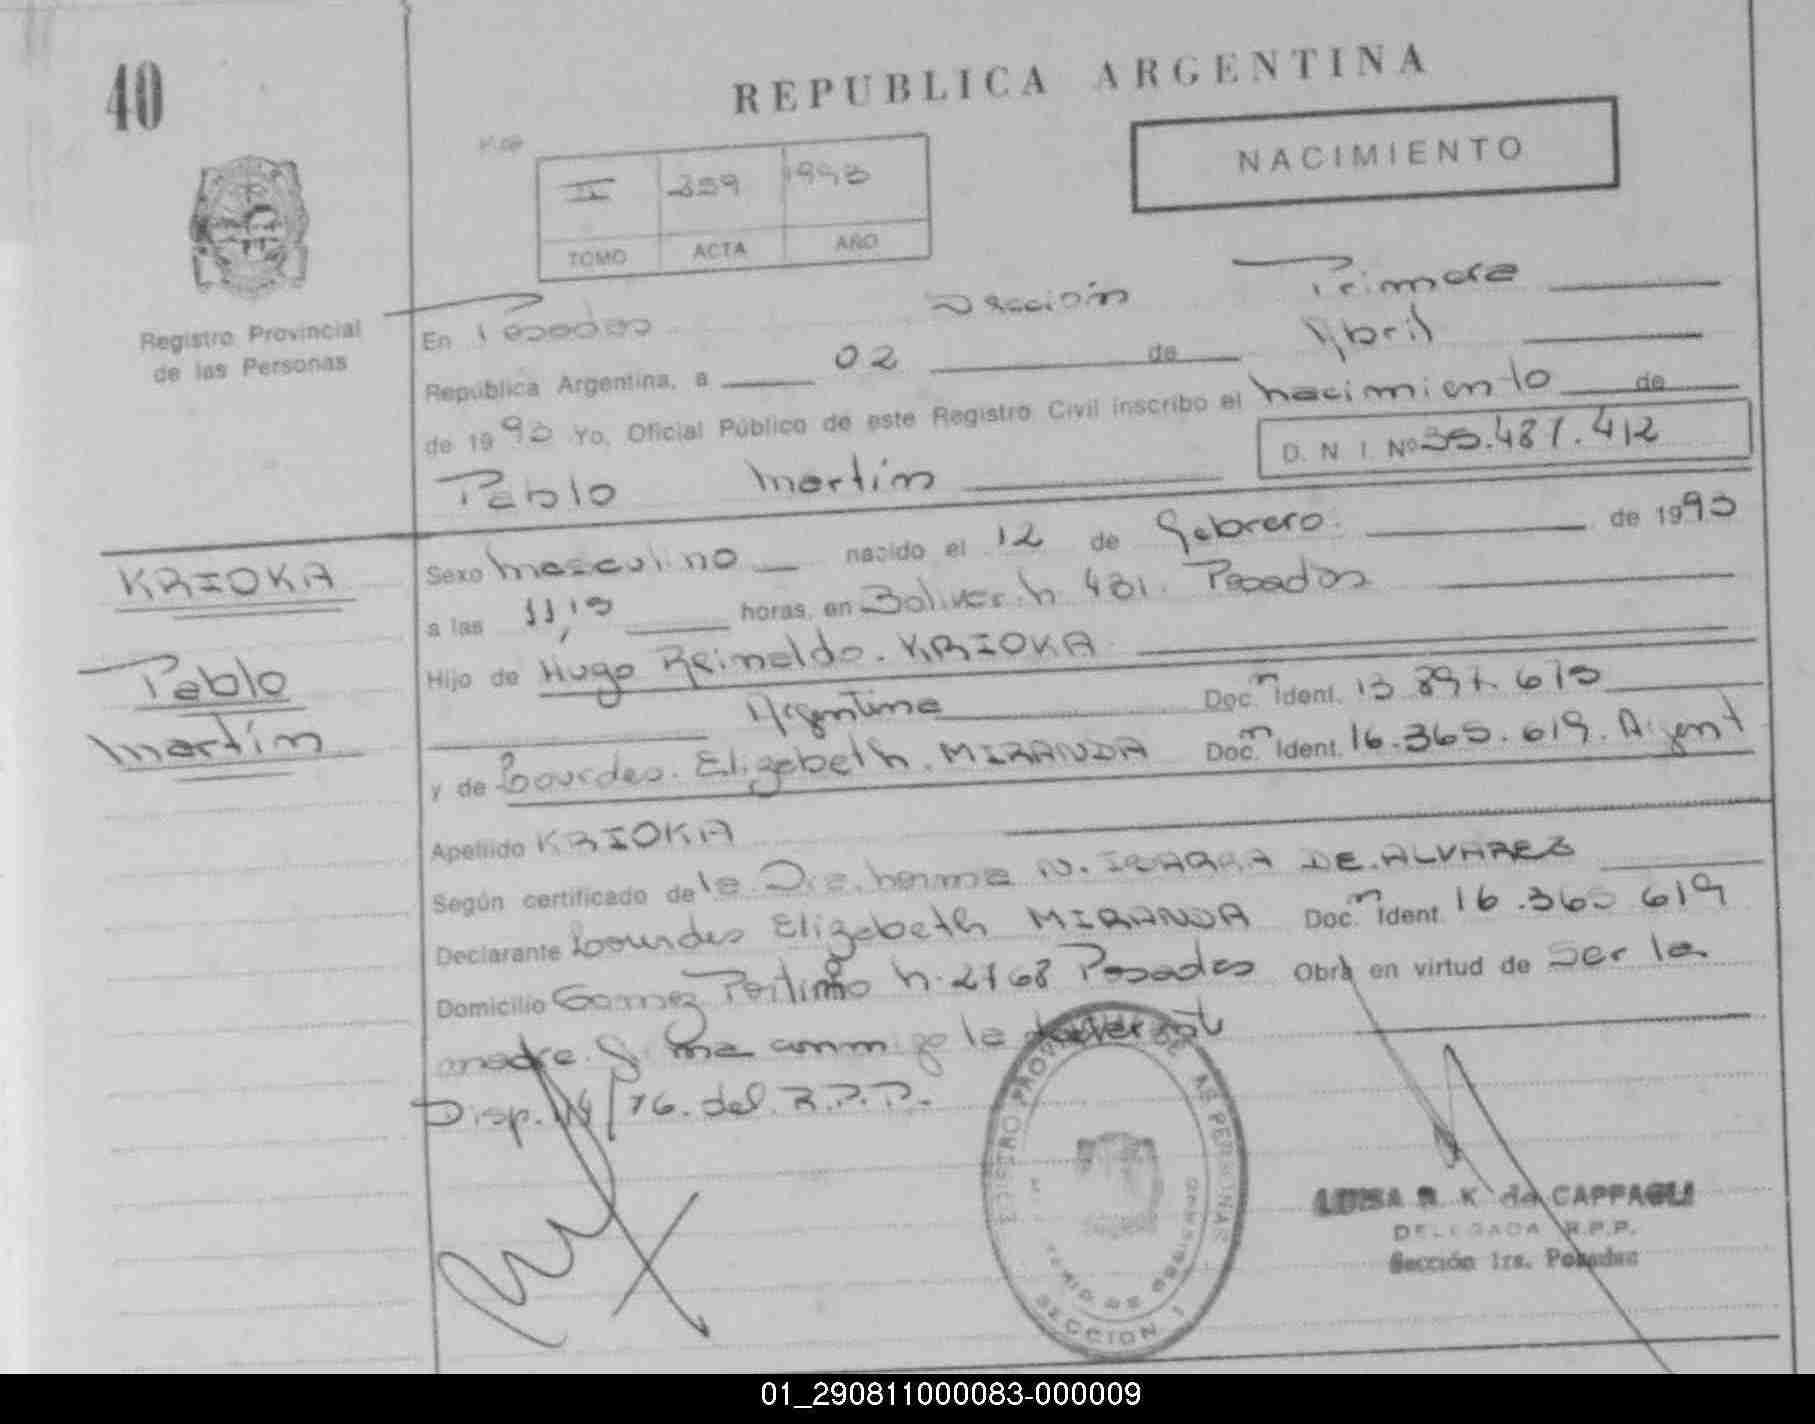 40
REPUBLICA ARGENTINA
NACIMIENTO
II 359 1993
TOMO ACTA AÑO
Registro Provincial
de las Personas
En Posadas Sección Primera
República Argentina, a 02 de Abril
de 1993 Yo, Oficial Público de este Registro Civil inscribo el nacimiento de
D. N. I. Nº
Pablo Martín
KRIOKA
Pablo
Martín
Sexo masculino nacido el 12 de febrero de 1993
a las 11,15 horas, en Bolivar n 481. Posadas
Hijo de Hugo Reinaldo. KRIOKA
Argentina Doc. Ident. 13.897.615
y de Lourdes. Elizabeth. MIRANDA Doc. Ident. 16.365.619. Argent
Apellido KRIOKA
Según certificado de la Dra. N. IBARRA DE. ALVAREZ
Declarante Lourdes Elizabeth MIRANDA Doc. Ident. 16.365 619
Domicilio Gomez Portinho n. 2768 Posadas Obra en virtud de Ser la
madre. la
Disp. /76. del. R.P.P.
REGISTRO PROVINCIAL DE LAS PERSONAS
SECCION 1
LUISA R. K. de CAPPAGLI
DELEGADA R.P.P.
Sección 1ra. Posadas
01_290811000083-000009